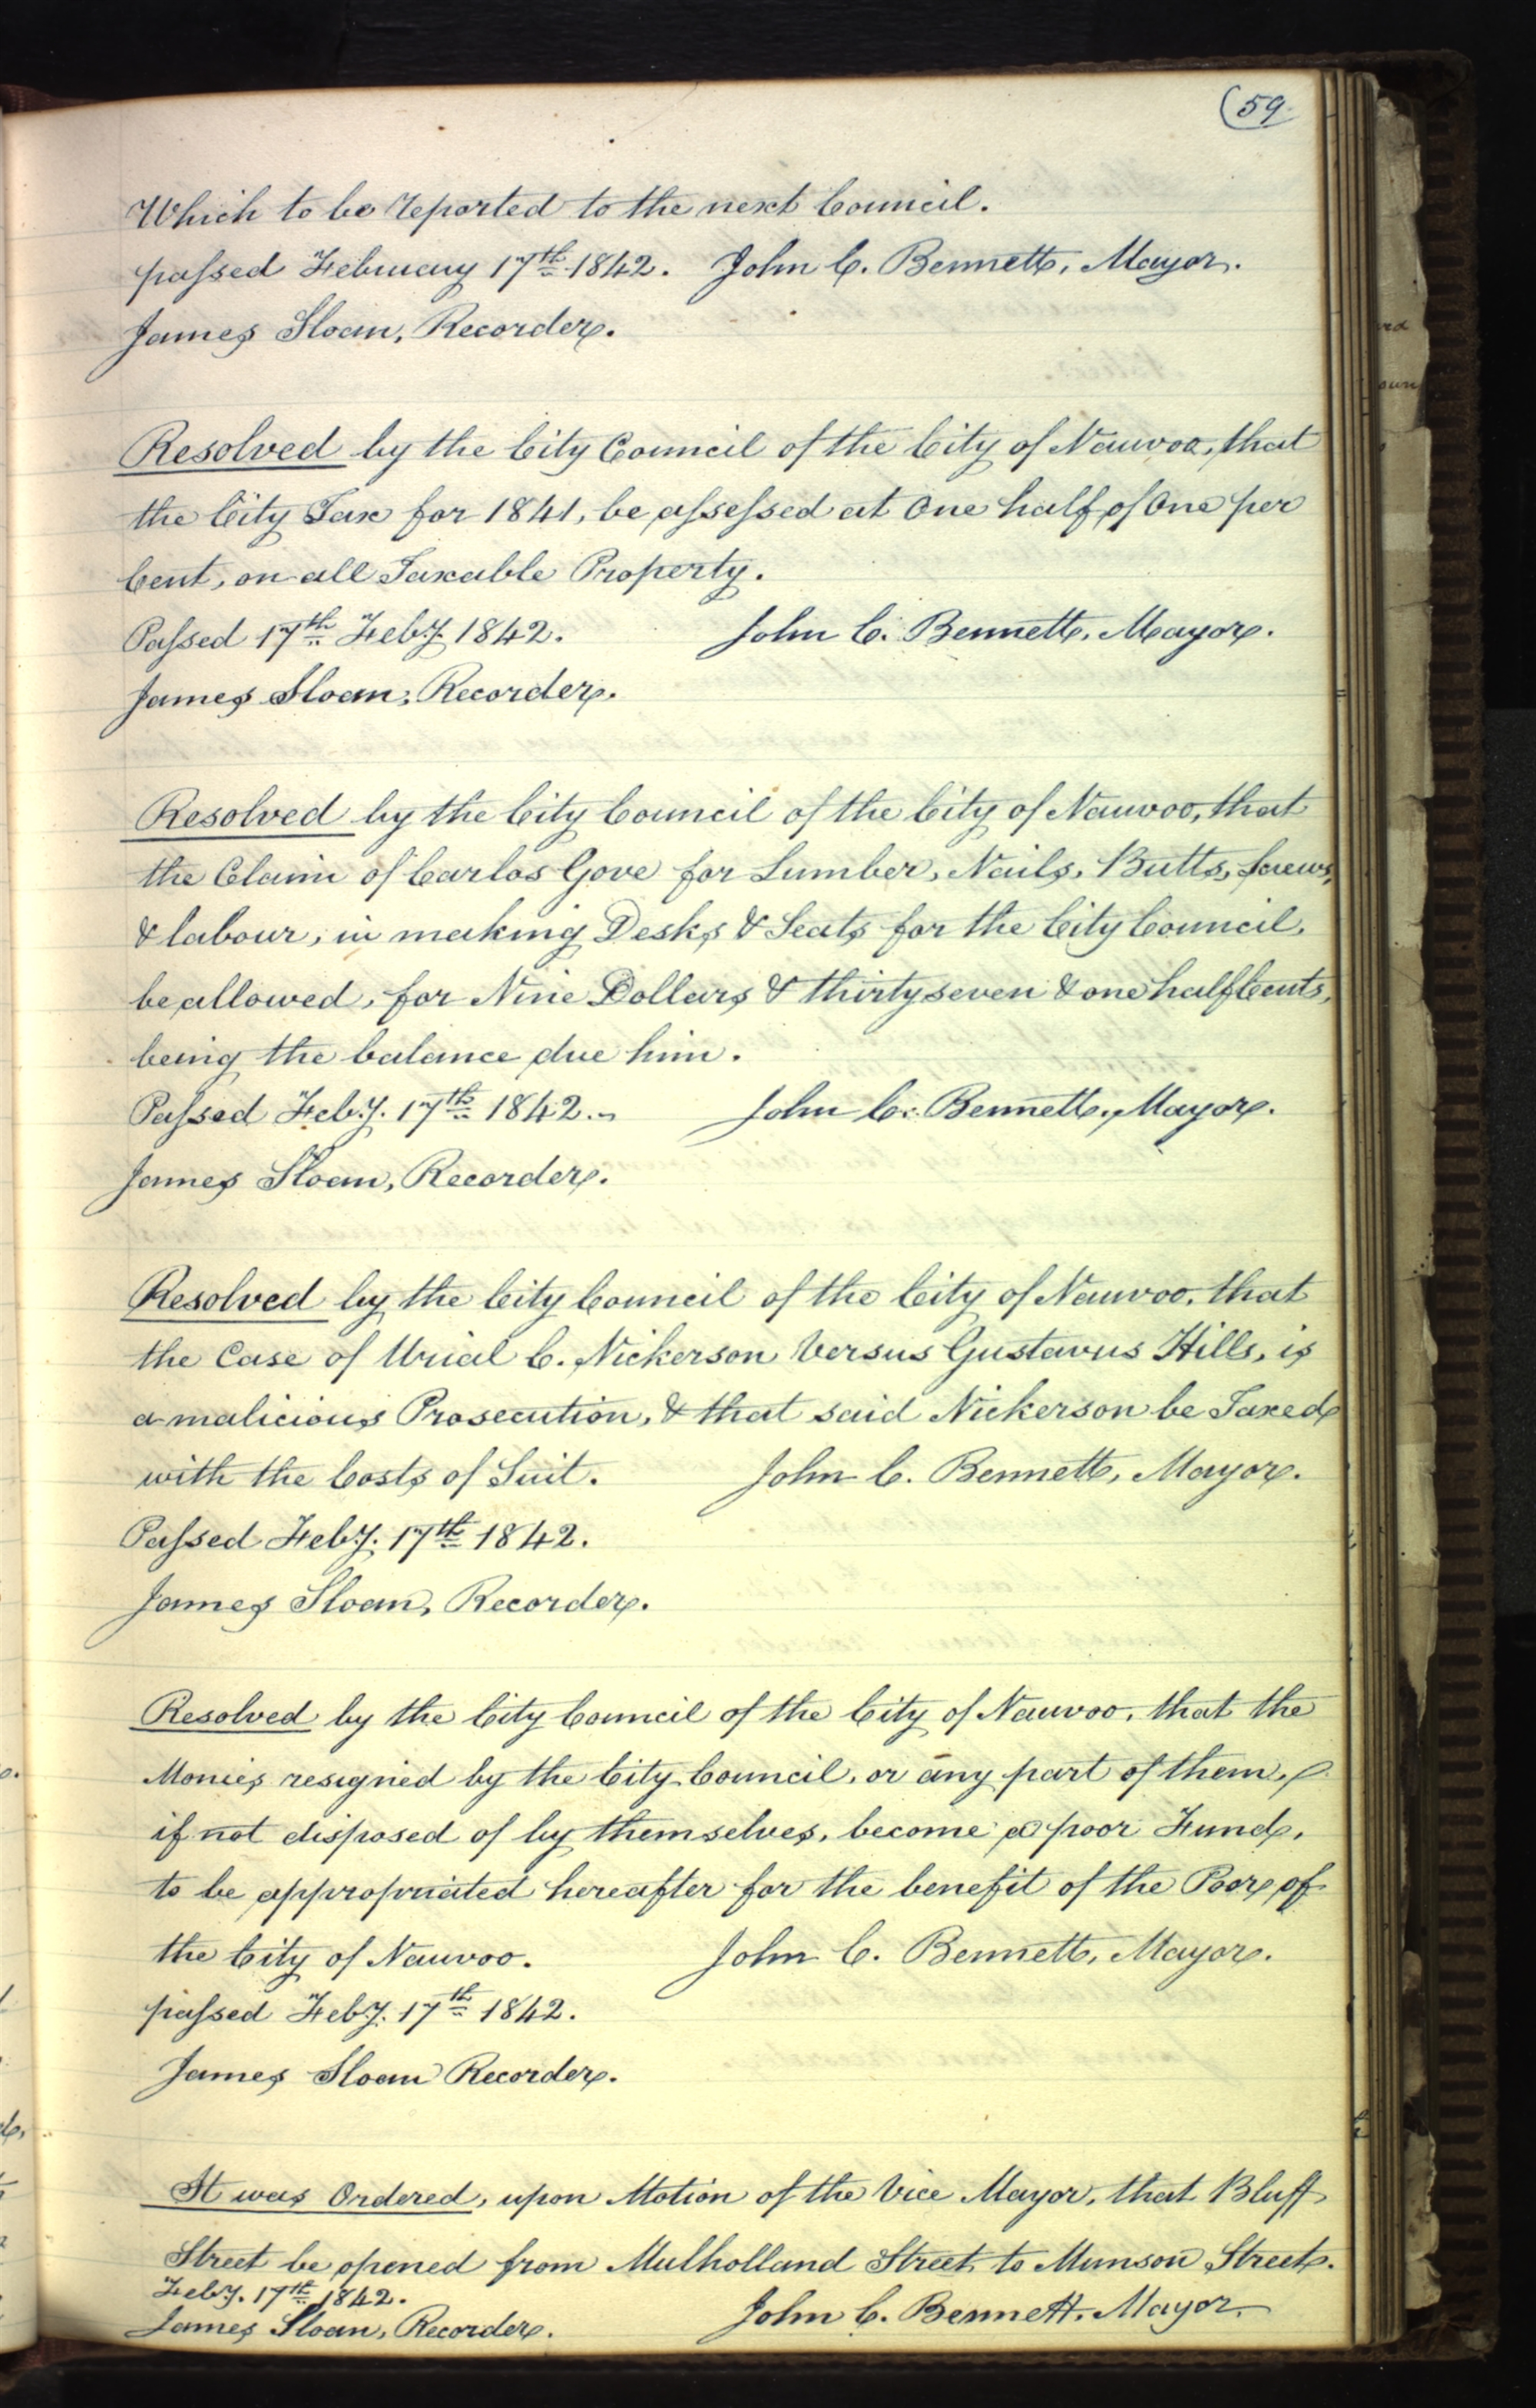 (59.
Which to be reported to the next Council.
passed February 17th 1842. John C. Bennett, Mayor.
James Sloan, Recorder.
Resolved by the City Council of the City of Nauvoo, that
the City Tax for 1841, be assessed at One half of One per
Cent, on all Taxable Property.
Passed 17th Feby. 1842. John C. Bennett, Mayor.
James Sloan, Recorder.
Resolved by the City Council of the City of Nauvoo, that
the Claim of Carlos Gove for Lumber, Nails, Butts, Screws,
& labour, in making Desks & Seats for the City Council,
be allowed, for Nine Dollars & thirty seven & one half Cents,
being the balance due him.
Passed Feby. 17th 1842. John C. Bennett, Mayor.
James Sloan, Recorder.
Resolved by the City Council of the City of Nauvoo, that
the Case of Urial C. Nickerson Versus Gustavus Hills, is
a malicious Prosecution, & that said Nickerson be Taxed
with the Costs of Suit. John C. Bennett, Mayor.
Passed Feby. 17th 1842.
James Sloan, Recorder.
Resolved by the City Council of the City of Nauvoo, that the
Monies resigned by the City Council, or any part of them,
if not disposed of by themselves, become a poor Fund,
to be appropriated hereafter for the benefit of the Poor of
the City of Nauvoo. John C. Bennett, Mayor.
passed Feby. 17th 1842.
James Sloan Recorder.
It was Ordered, upon Motion of the Vice Mayor, that Bluff
Street be opened from Mulholland Street to Munson Street.
Feby. 17th 1842.
James Sloan, Recorder. John C. Bennett, Mayor.